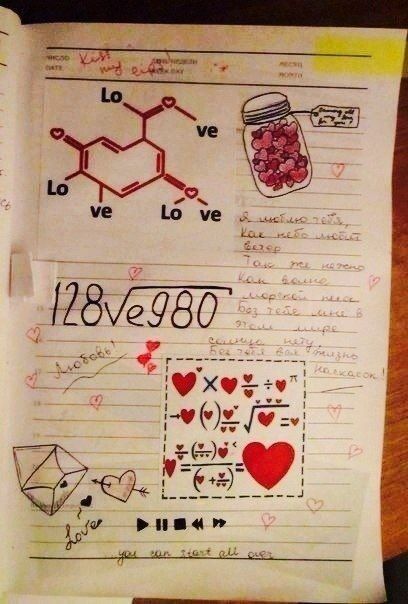 ЧИСЛО
DATE
ДЕНЬ НЕДЕЛИ
WEEK DAY
МЕСЯЦ
MONTH
Kiss
my
Lo
ve
Lo
ve
Lo
ve
Я люблю тебя,
Как небо любит
ветер
Так же нежно
Как волна
морской
Без тебя мне в
этом мире
солнца нету,
Без тебя вся жизнь
Наскасок!
128√e980
Любовь!
× ÷ π
→ ( ) √ =
( ) =
( + )
Love
...you can start all over